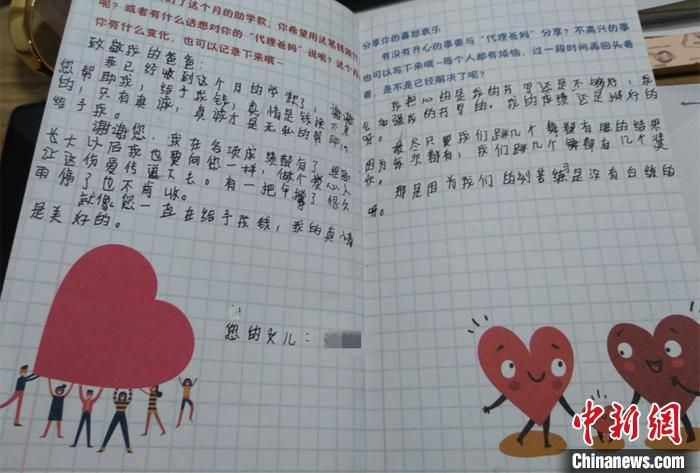 到了这个月的助学款，你希望用这笔钱做什
呢？或者有什么话想对你的“代理爸妈”说呢？这个月
你有什么变化，也可以记录下来哦—
致敬我的爸爸：
我已经收到这个月的学款了，谢谢
您帮助我，给予我钱，真情是钱换不来
的，只有真诚，真诚才是无私的帮
给予我。
谢谢您，我在各项成绩都有了
长大以后我也要向您一样，做个爱心人
让这份爱传下去。有一把伞撑了很久
雨停了也不肯收。
就像您一直在给予我钱，我的真情
是美好的。
您的女儿：
分享你的喜怒哀乐
有没有开心的事要与“代理爸妈”分享？不高兴的事
也可以写下来哦—每个人都有烦恼，过一段时间再回头看
看，是不是已经解决了呢？
我担心的是我的书写还是不够好，我
会加强我的书写的。我的成绩还是挺好的
呀。
最近只要我们跳几个舞都有的结果
因为每次都有，我们跳几个舞都有几个奖
状。
那是因为我们的刻苦练习是没有白练的
呀。
中新网
Chinanews.com